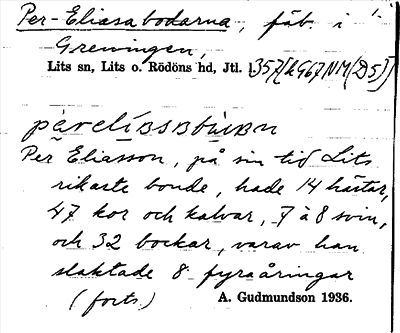 Per-Eliasabodarna, fäb. i 1.
Greningen,
Lits sn, Lits o. Rödöns hd, Jtl. 1357[kG67NM(D5)]
Per Eliasson, på sin tid Lits
rikaste bonde, hade 14 hästar,
47 kor och kalvar, 7 à 8 svin,
och 32 bockar, varav han
slaktade 8 fyraåringar
(forts.) A. Gudmundson 1936.